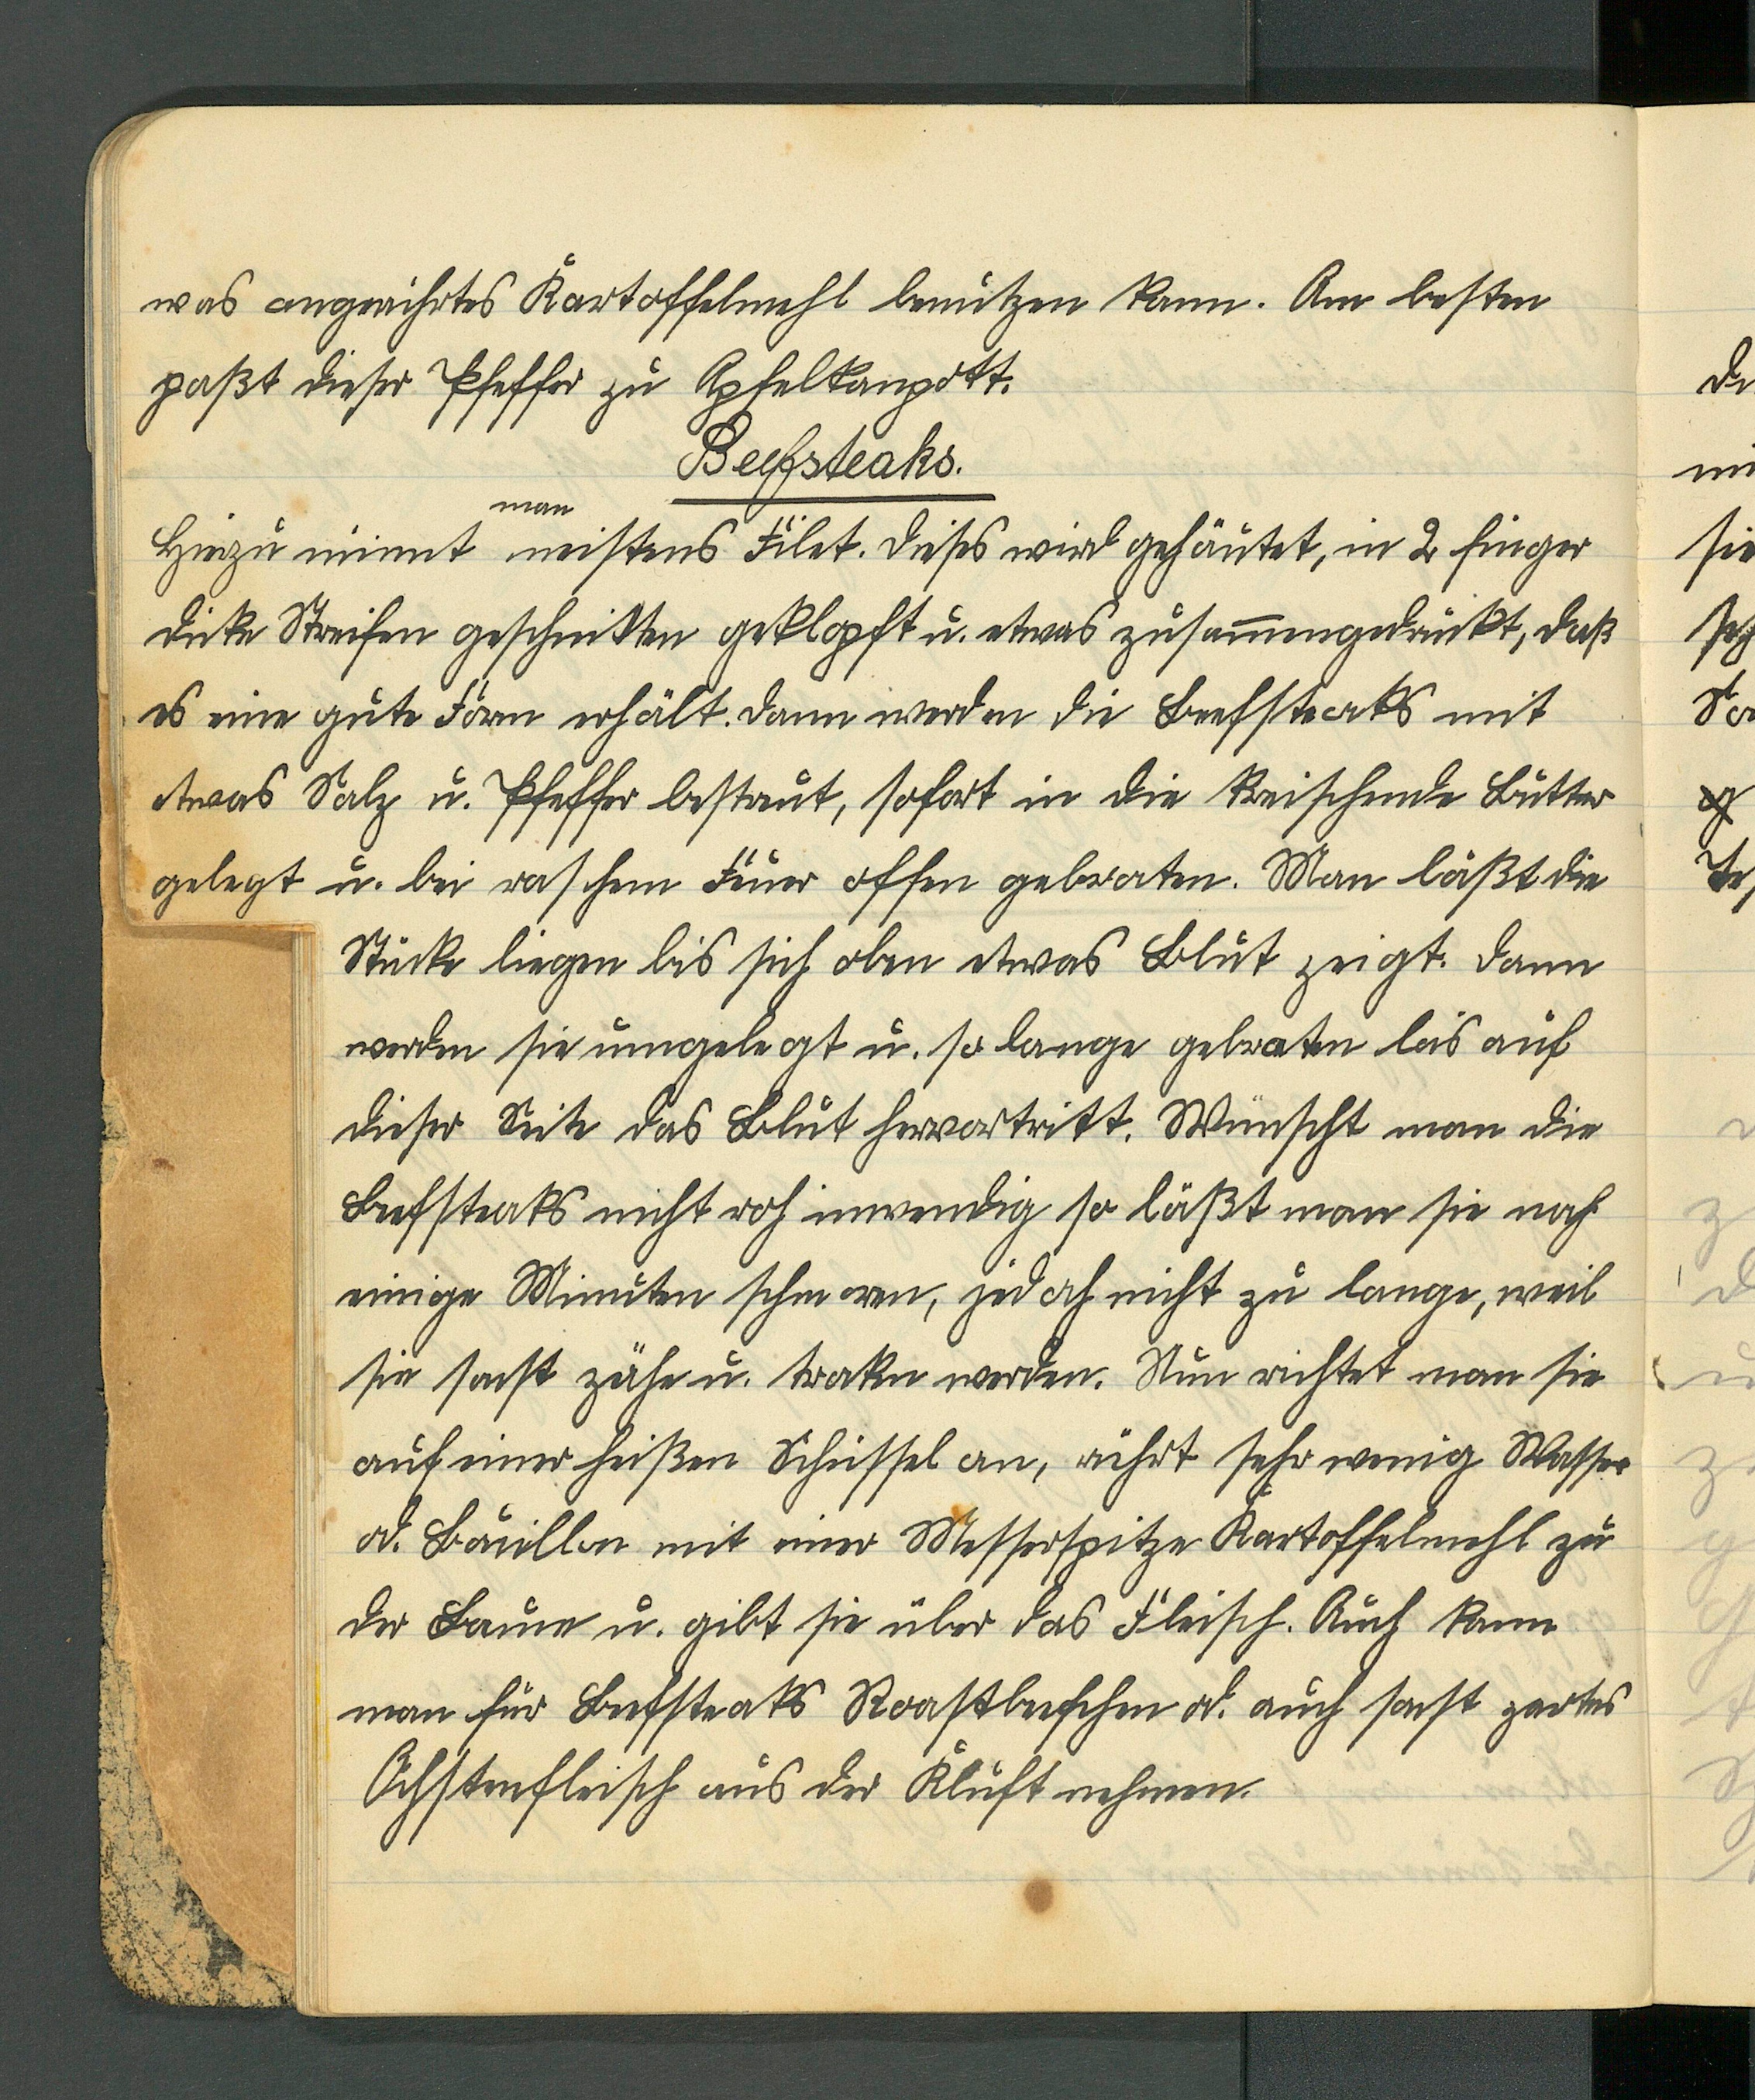 was angerührtes Kartoffelmehl benutzen kann. Am besten
paßt dieser Pfeffer zu Apfelkompott.
Beefsteaks.
man
Hiezu nimmt meistens Filet. Dieses wird gehäutet, in 2 finger
dicke Streifen geschnitten geklopft u. etwas zusam̅engedrückt, daß
es eine gute Form erhält. Dann werden die Beefsteaks mit
etwas Salz u. Pfeffer bestreut, sofort in die kreischende Butter
gelegt u. bei raschem Feuer offen gebraten. Man läßt die
Stücke liegen bis sich oben etwas Blut zeigt. Dann
werden sie umgelegt u. so lange gebraten bis auf
dieser Seite das Blut hervortritt. Wünscht man die
Beefsteaks nicht roh inwendig so läßt man sie noch
einige Minuten schmoren, jedoch nicht zu lange, weil
sie sonst zähe u. troken werden. Nun richtet man sie
auf einer heißen Schüssel an, rührt sehr wenig Wasser
od. Bouillon mit einer Messerspitze Kartoffelmehl zu
der Sauce u. gibt sie über das Fleisch. Auch kann
man für Beefsteaks Roastbeefchen od. auch sonst zartes
Ochstenfleisch aus der Kluft nehmen.